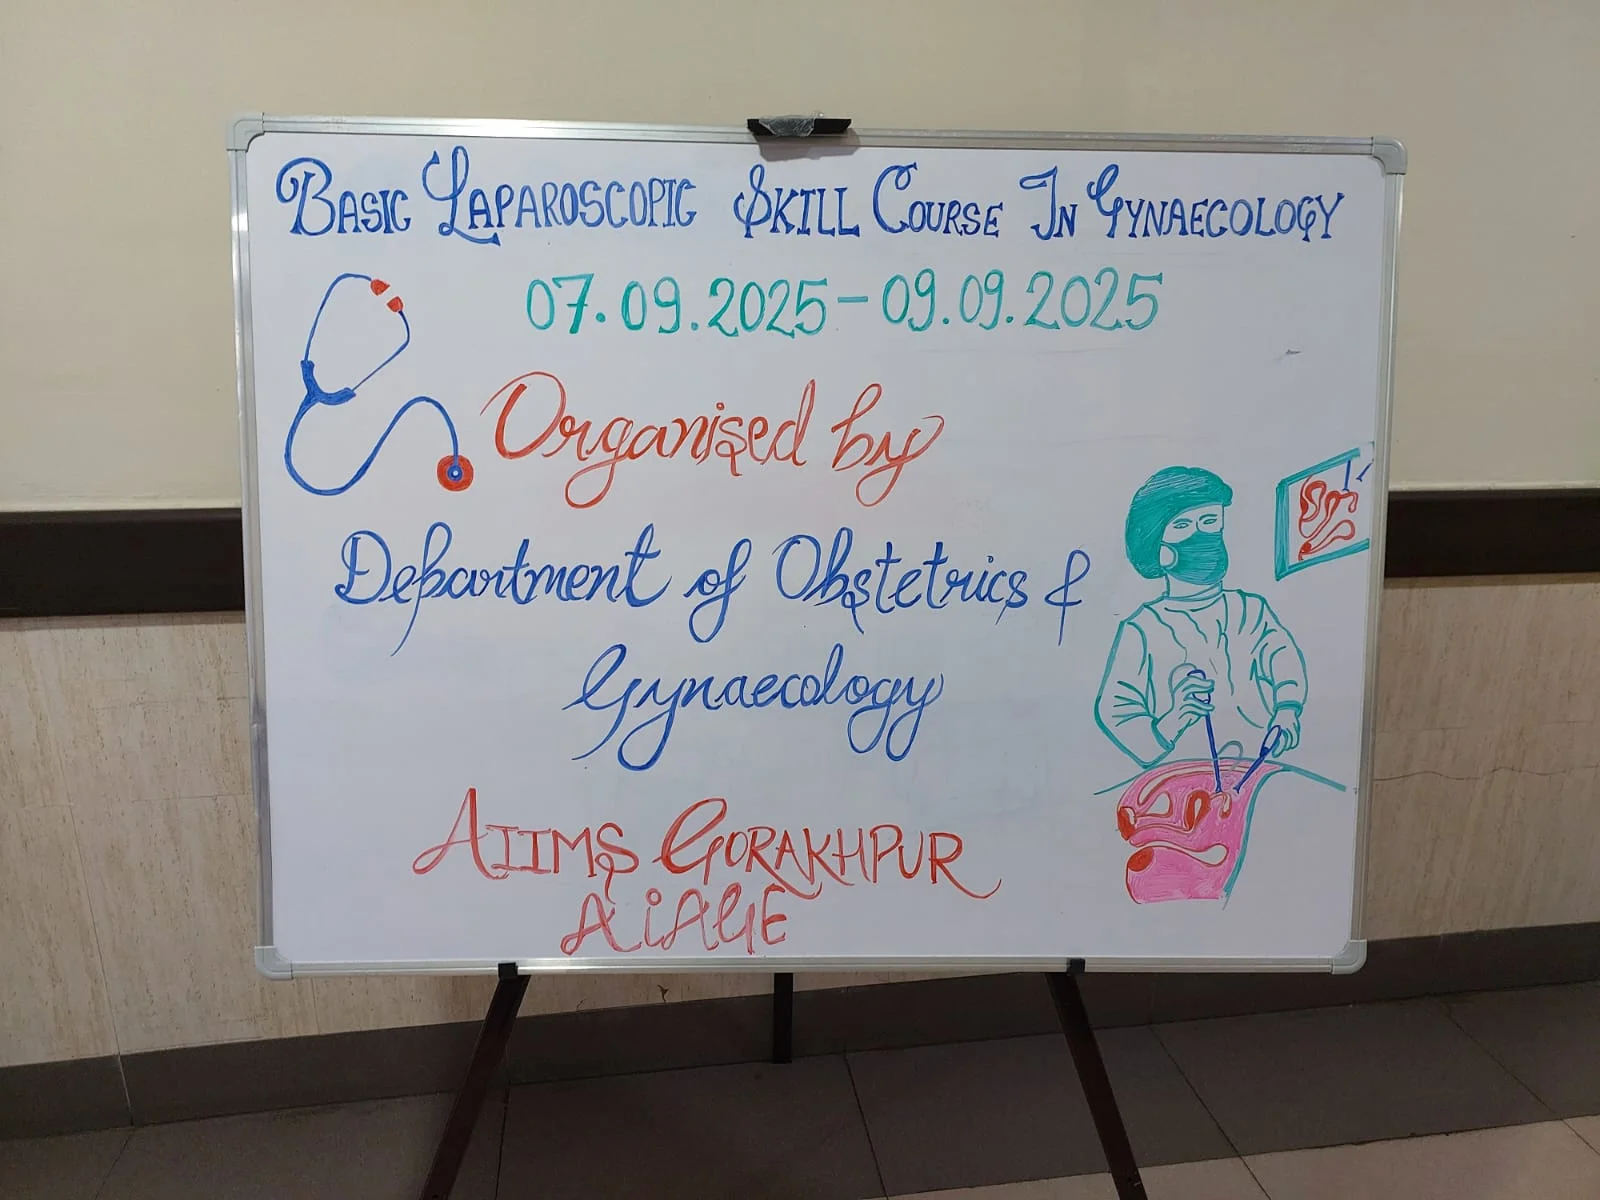 BASIC LAPAROSCOPIC SKILL COURSE IN GYNAECOLOGY
07.09.2025-09.09.2025
Organised by
Department of Obstetrics &
Gynaecology
AIIMS GORAKHPUR
AiAGE